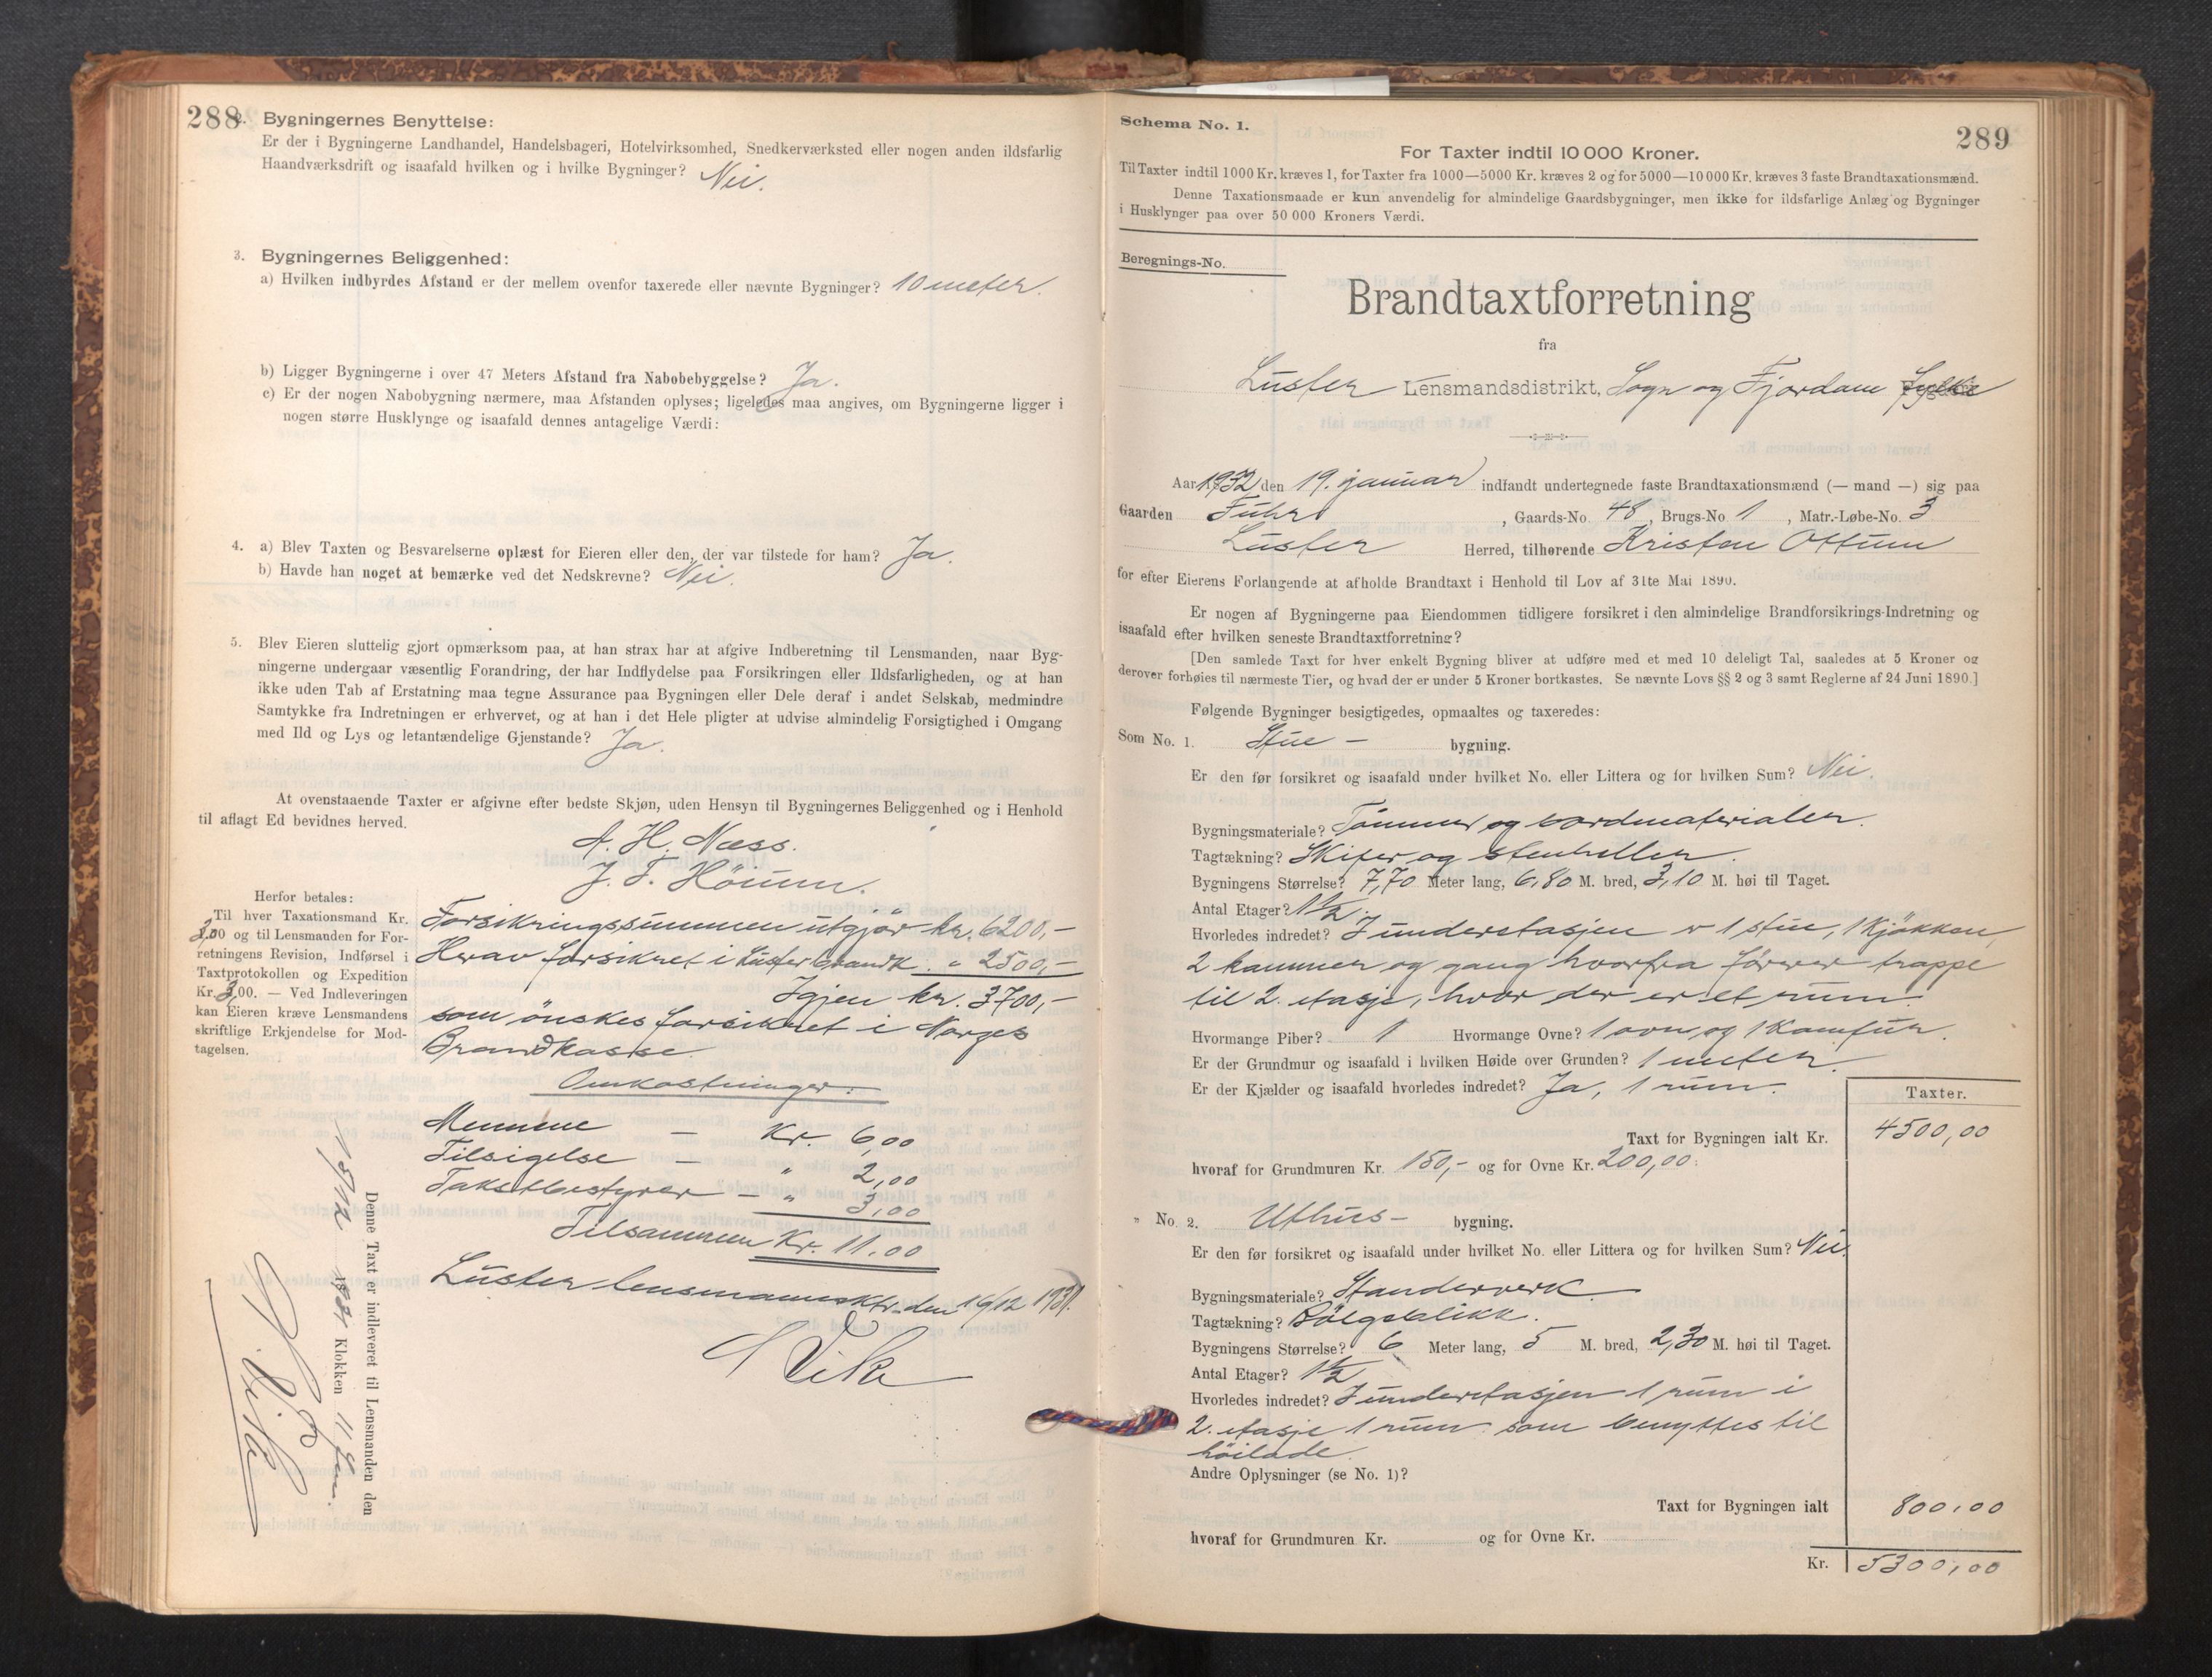 288
2. Bygningernes Benyttelse:
Er der i Bygningerne Landhandel, Handelsbageri, Hotelvirksomhed, Snedkerværksted eller nogen anden ildsfarlig
Haandværksdrift og isaafald hvilken og i hvilke Bygninger? Nei.
3. Bygningernes Beliggenhed:
a) Hvilken indbyrdes Afstand er der mellem ovenfor taxerede eller nævnte Bygninger? 10 meter.
b) Ligger Bygningerne i over 47 Meters Afstand fra Nabobebyggelse? Ja.
c) Er der nogen Nabobygning nærmere, maa Afstanden oplyses; ligeledes maa angives, om Bygningerne ligger i
nogen større Husklynge og isaafald dennes antagelige Værdi:
4. a) Blev Taxten og Besvarelserne oplæst for Eieren eller den, der var tilstede for ham? Ja.
b) Havde han noget at bemærke ved det Nedskrevne? Nei.
5. Blev Eieren sluttelig gjort opmærksom paa, at han strax har at afgive Indberetning til Lensmanden, naar Byg-
ningerne undergaar væsentlig Forandring, der har Indflydelse paa Forsikringen eller Ildsfarligheden, og at han
ikke uden Tab af Erstatning maa tegne Assurance paa Bygningen eller Dele deraf i andet Selskab, medmindre
Samtykke fra Indretningen er erhvervet, og at han i det Hele pligter at udvise almindelig Forsigtighed i Omgang
med Ild og Lys og letantændelige Gjenstande? Ja.
At ovenstaaende Taxter er afgivne efter bedste Skjøn, uden Hensyn til Bygningernes Beliggenhed og i Henhold
til aflagt Ed bevidnes herved.
A. H. Næss.
J. T. Höium.
Herfor betales:
Til hver Taxationsmand Kr.
3,00 og til Lensmanden for For-
retningens Revision, Indførsel i
Taxtprotokollen og Expedition
Kr. 3,00. — Ved Indleveringen
kan Eieren kræve Lensmandens
skriftlige Erkjendelse for Mod-
tagelsen.
Forsikringssummen utgjör kr. 6200,-
Herav forsikret i Luster brandk. " 2500,-
Igjen kr. 3700,-
som önskes forsikret i Norges
Brandkasse.
Omkostninger:
Mennene — Kr. 6,00
Tilsigelse — " 2,00
Takstbestyrer — " 3,00
Tilsammen Kr. 11.00
Luster lensmannsktr. den 16/12 1931.
Vik
Denne Taxt er indleveret til Lensmanden den
15/12 1931 Klokken 11 fm.
Vik
289
Schema No. 1.
For Taxter indtil 10 000 Kroner.
Til Taxter indtil 1000 Kr. kræves 1, for Taxter fra 1000—5000 Kr. kræves 2 og for 5000—10 000 Kr. kræves 3 faste Brandtaxationsmænd.
Denne Taxationsmaade er kun anvendelig for almindelige Gaardsbygninger, men ikke for ildsfarlige Anlæg og Bygninger
i Husklynger paa over 50 000 Kroners Værdi.
Beregnings-No.
Brandtaxtforretning
fra
Luster Lensmandsdistrikt, Sogn og Fjordane fylke
Aar 1932 den 19. januar indfandt undertegnede faste Brandtaxationsmænd (— mand —) sig paa
Gaarden Fuhr, Gaards-No. 48, Brugs-No 1, Matr.-Løbe-No. 3
Luster Herred, tilhørende Kristen Ottum
for efter Eierens Forlangende at afholde Brandtaxt i Henhold til Lov af 31te Mai 1890.
Er nogen af Bygningerne paa Eiendommen tidligere forsikret i den almindelige Brandforsikrings-Indretning og
isaafald efter hvilken seneste Brandtaxtforretning?
[Den samlede Taxt for hver enkelt Bygning bliver at udføre med et med 10 deleligt Tal, saaledes at 5 Kroner og
derover forhøies til nærmeste Tier, og hvad der er under 5 Kroner bortkastes. Se nævnte Lovs §§ 2 og 3 samt Reglerne af 24 Juni 1890.]
Følgende Bygninger besigtigedes, opmaaltes og taxeredes:
Som No. 1. Stue – bygning.
Er den før forsikret og isaafald under hvilket No. eller Littera og for hvilken Sum? Nei.
Bygningsmateriale? Tömmer og bordmaterialer.
Tagtækning? Skifer og stenheller.
Bygningens Størrelse? 7,70 Meter lang, 6,80 M. bred, 3,10 M. høi til Taget.
Antal Etager? 1½.
Hvorledes indredet? I underetasjen er 1 stue, 1 kjökken,
2 kammer og gang hvorfra förer trappe
til 2. etasje, hvor der er et rum.
Hvormange Piber? 1 Hvormange Ovne? 1 ovn og 1 komfur.
Er der Grundmur og isaafald i hvilken Høide over Grunden? 1 meter.
Er der Kjælder og isaafald hvorledes indredet? Ja, 1 rum.
Taxter.
Taxt for Bygningen ialt Kr. 4500,00
hvoraf for Grundmuren Kr. 150,- og for Ovne Kr. 200,00.
" No. 2. Uthus- bygning.
Er den før forsikret og isaafald under hvilket No. eller Littera og for hvilken Sum? Nei.
Bygningsmateriale? Standerverk
Tagtækning? Bölgeblikk.
Bygningens Størrelse? 6 Meter lang, 5 M. bred, 2,30 M. høi til Taget.
Antal Etager? 1½
Hvorledes indredet? I underetasjen 1 rum i
2. etasje 1 rum som benyttes til
höilade.
Andre Oplysninger (se No. 1)?
Taxt for Bygningen ialt 800,00
hvoraf for Grundmuren Kr. og for Ovne Kr.
Kr. 5300,00